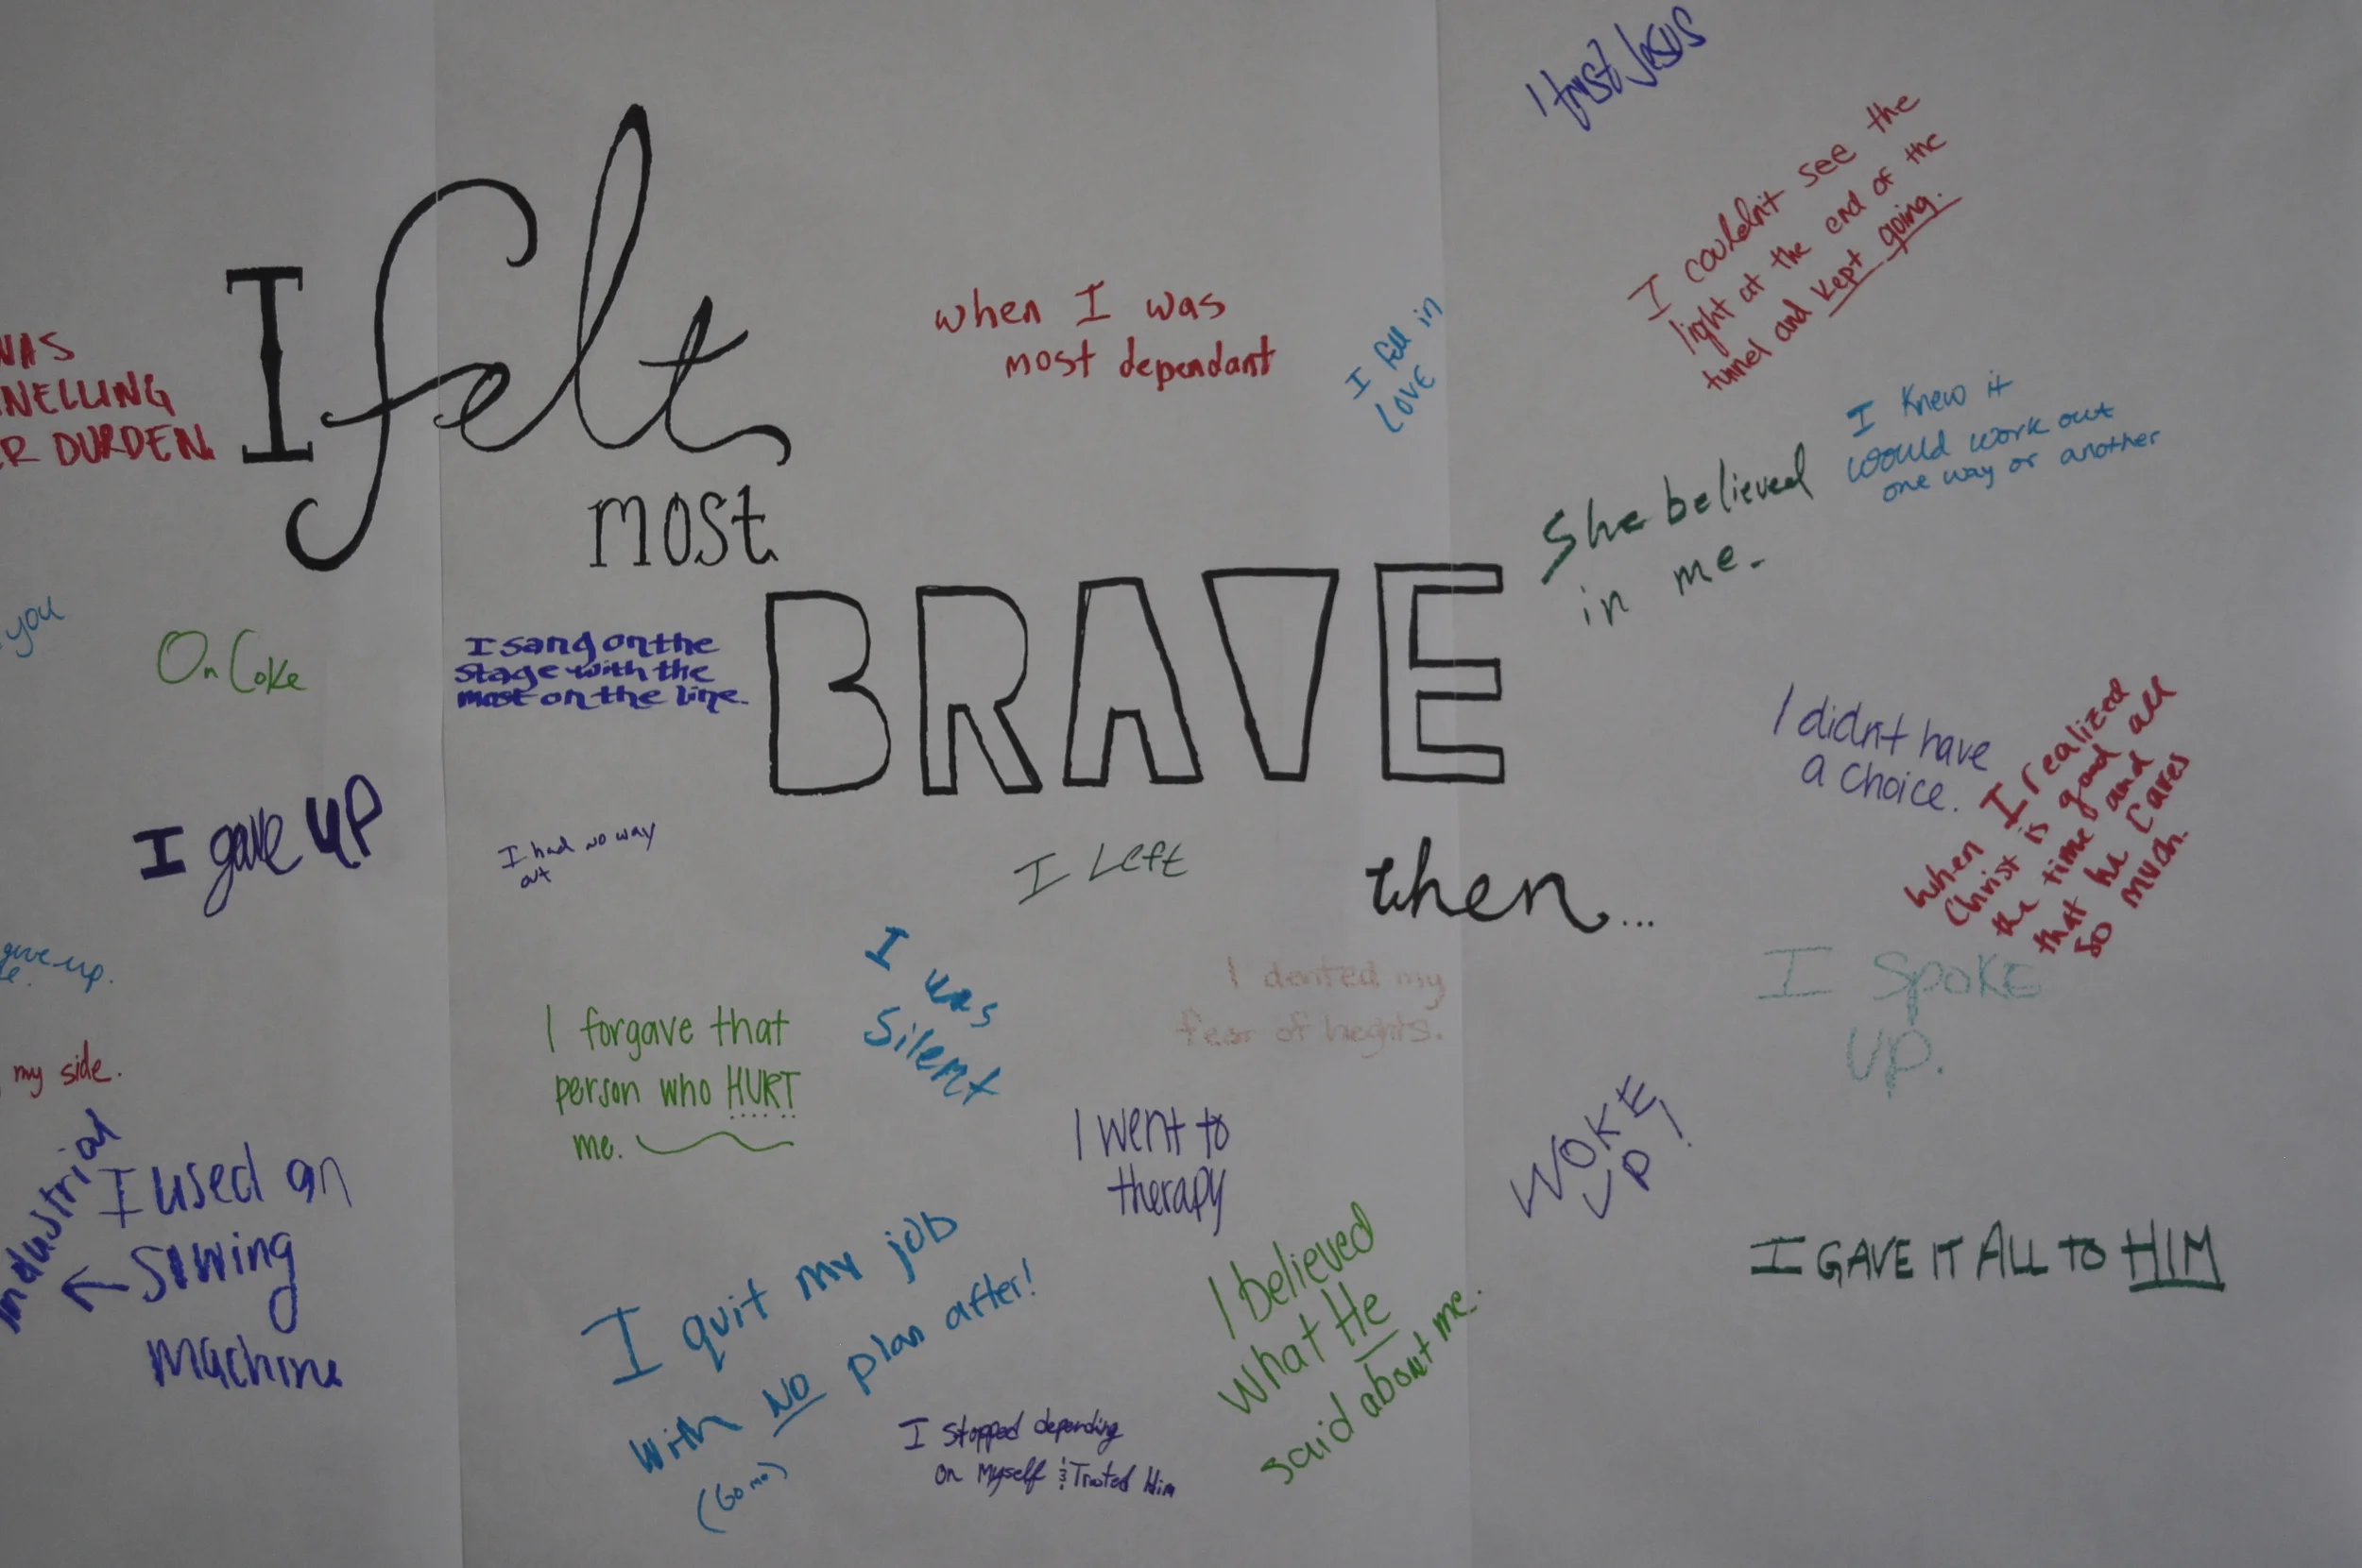 I felt
most
BRAVE
then...
I trust Jesus
I couldn't see the
light at the end of the
tunnel and kept going.
when I was
most dependant
I fell in
LOVE
WAS
NELLING
R DURDEN.
I Knew it
would work out
one way or another
She believed
in me.
you
On Coke
I sang on the
stage with the
most on the line.
I didn't have
a choice.
When I realized
Christ is good all
the time and and
that he Cares
so much.
I gave UP
I had no way
out
I Left
give up.
e.
I was
Silent
I dented my
fear of heghts.
I SpoKE
UP.
I forgave that
person who HURT
me.
my side.
I went to
therapy
WOKE
UP!
industrial
I used an
← Siwing
Machine
I quit my job
with NO plan after!
(Go me)
I believed
what He
said about me.
I GAVE IT ALL TO HIM
I stopped depending
on Myself & Trusted Him